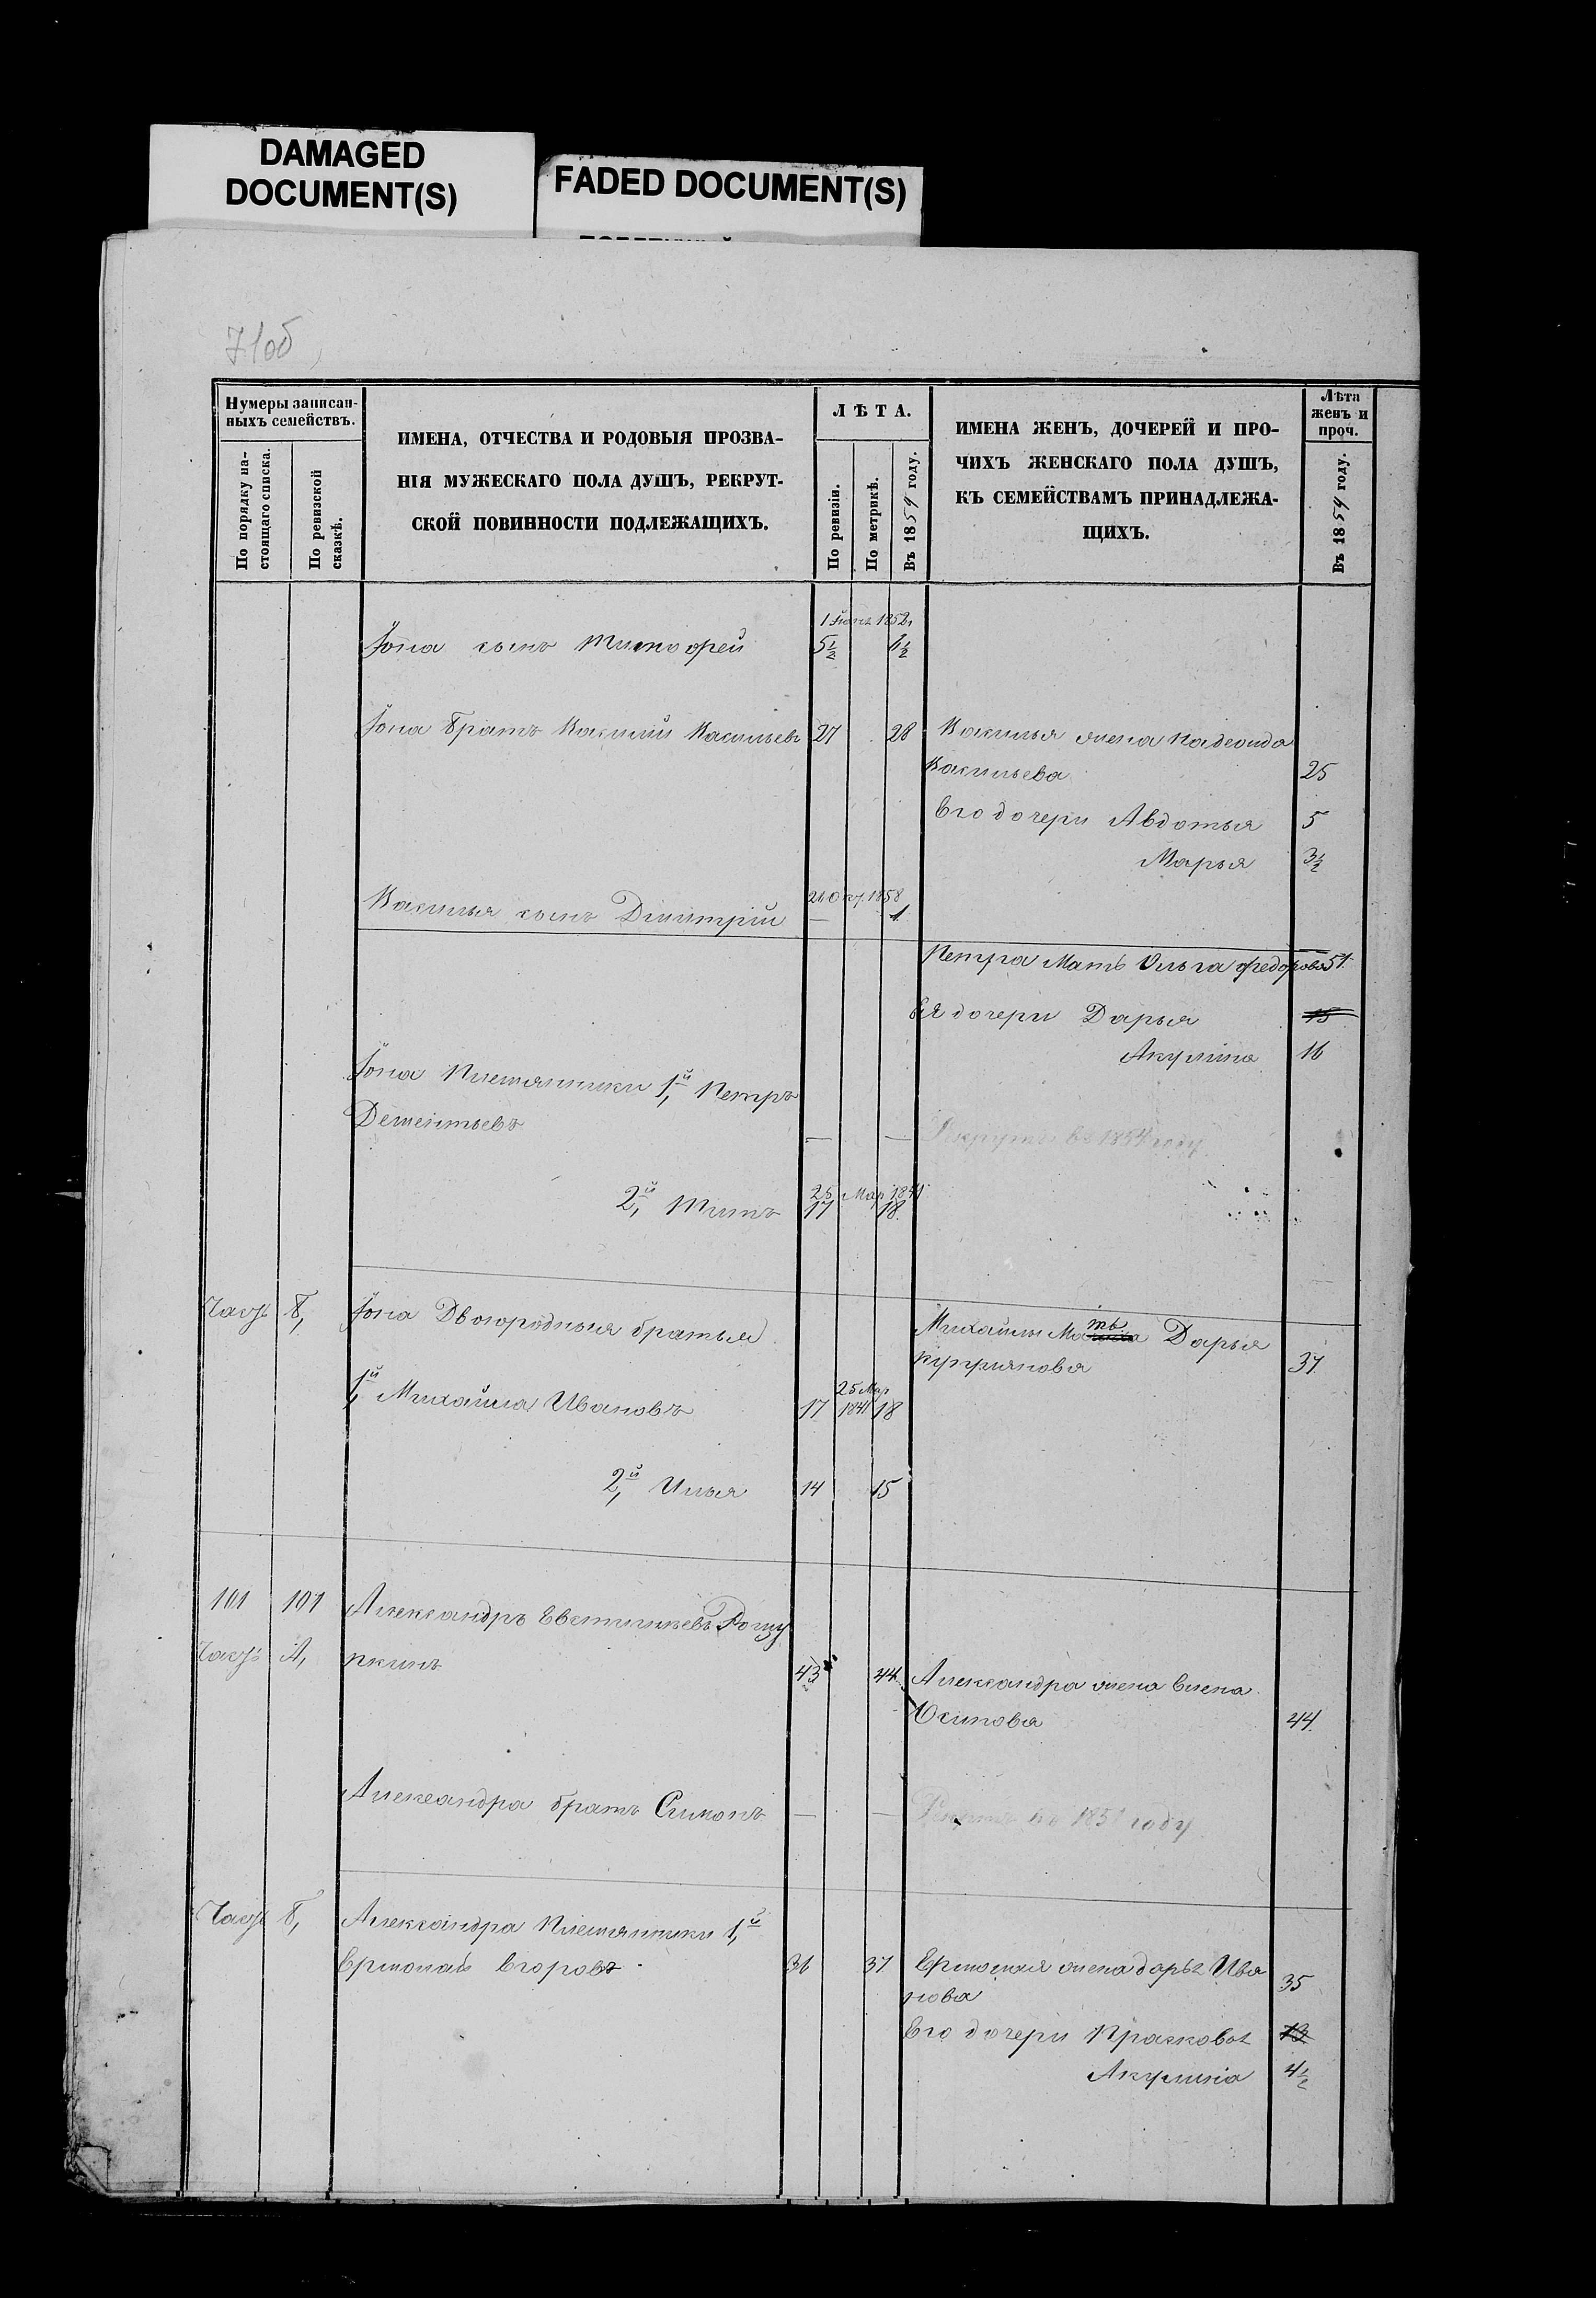 DAMAGED
DOCUMENT(S)
FADED DOCUMENT(S)
71об
Нумеры записан-
ныхъ семействъ.
По порядку на-
стоящаго списка.
По ревизской
сказкѣ.
ИМЕНА, ОТЧЕСТВА И РОДОВЫЯ ПРОЗВА-
НІЯ МУЖЕСКАГО ПОЛА ДУШЪ, РЕКРУТ-
СКОЙ ПОВИННОСТИ ПОДЛЕЖАЩИХЪ.
ЛѢТА.
По ревизіи.
По метрикѣ.
Въ 1859 году.
ИМЕНА ЖЕНЪ, ДОЧЕРЕЙ И ПРО-
ЧИХЪ ЖЕНСКАГО ПОЛА ДУШЪ,
КЪ СЕМЕЙСТВАМЪ ПРИНАДЛЕЖА-
ЩИХЪ.
Лѣта
женъ и
проч.
Въ 1859 году.
1 1852
Іона сынъ Тимофей 5½ 6½
Іона братъ Василий Васильевъ 27 28 Василья жена
Васильева 25
Его дочери Авдотья 5
Марья 3½
1858
Василья сынъ Димитрій — 1
Петра Мать Ольга Федорова 51
Ея дочери Дарья 15
Акулина 16
Іона Племянники 1й Петръ
Дементьевъ — — въ 1854 году
25 Мар 1841
2й Титъ 17 18
Часть Б, Іона Двоюродныя братья
Михайлы Мать Дарья
Куприянова 37
25 Мар
1й Михайла Ивановъ 17 1841 18
2й Илья 14 15
101 101 Александръ Евстигнѣевъ
Часть А, 43 44 Александра жена Елена
Осипова 44
Александра братъ Симонъ — — году
Часть Б, Александра Племянники 1й
Ермолай Егоровъ 36 37 Ермолая жена Дарья Ива
нова 35
Его дочери Прасковья 13
Акулина 4½